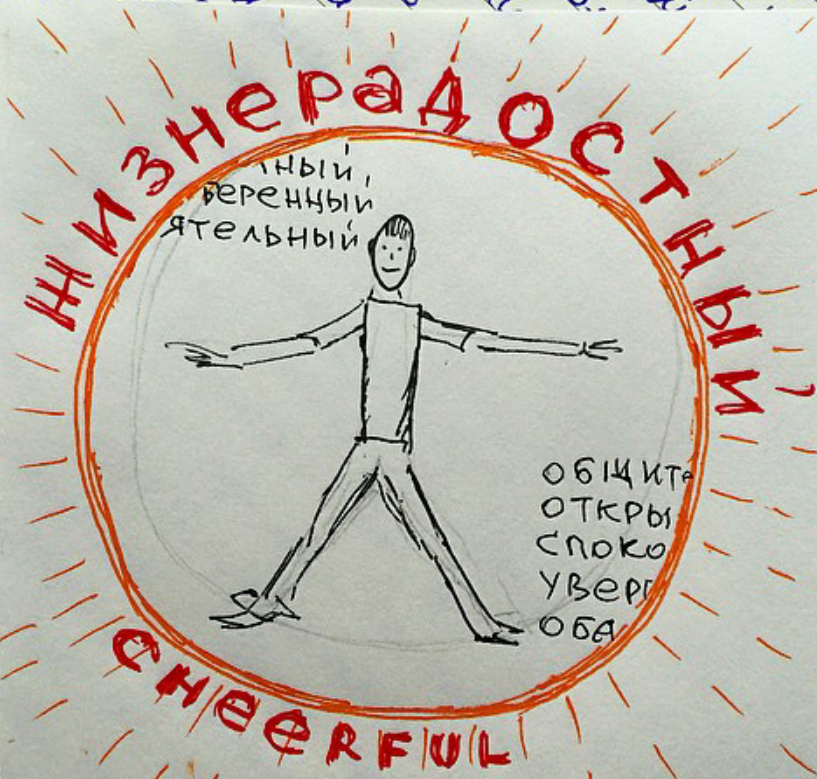 жизнерадостный
ный,
веренный
ятельный
общите
откры
споко
увер
оба
cheerful